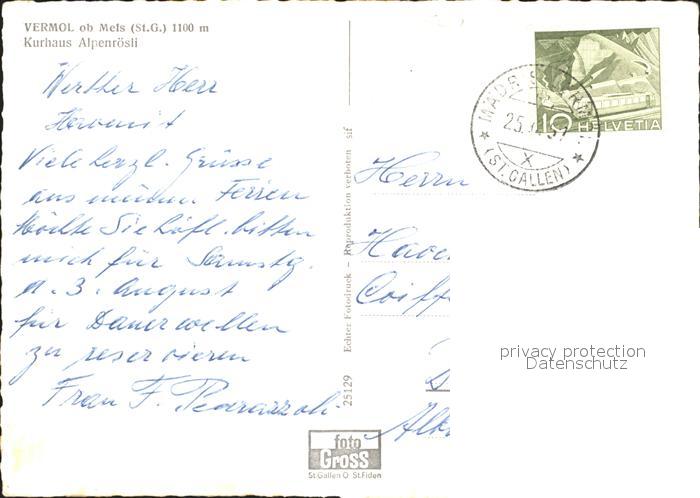 VERMOL ob Mels (St.G.) 1100 m
Kurhaus Alpenrösli
Werther Herr
Viele herzl. Grüsse
aus meinen Ferien
Möchte Sie höfl. bitten
mich für Samstg.
d. 3. August
für Dauerwellen
zu reservieren
Frau F.
25129 Echter Fotodruck – Reproduktion verboten sif
foto
Gross
St.Gallen O St.Fiden
10 HELVETIA
25.
X
(ST. GALLEN)
Herrn
Coiff
privacy protection
Datenschutz